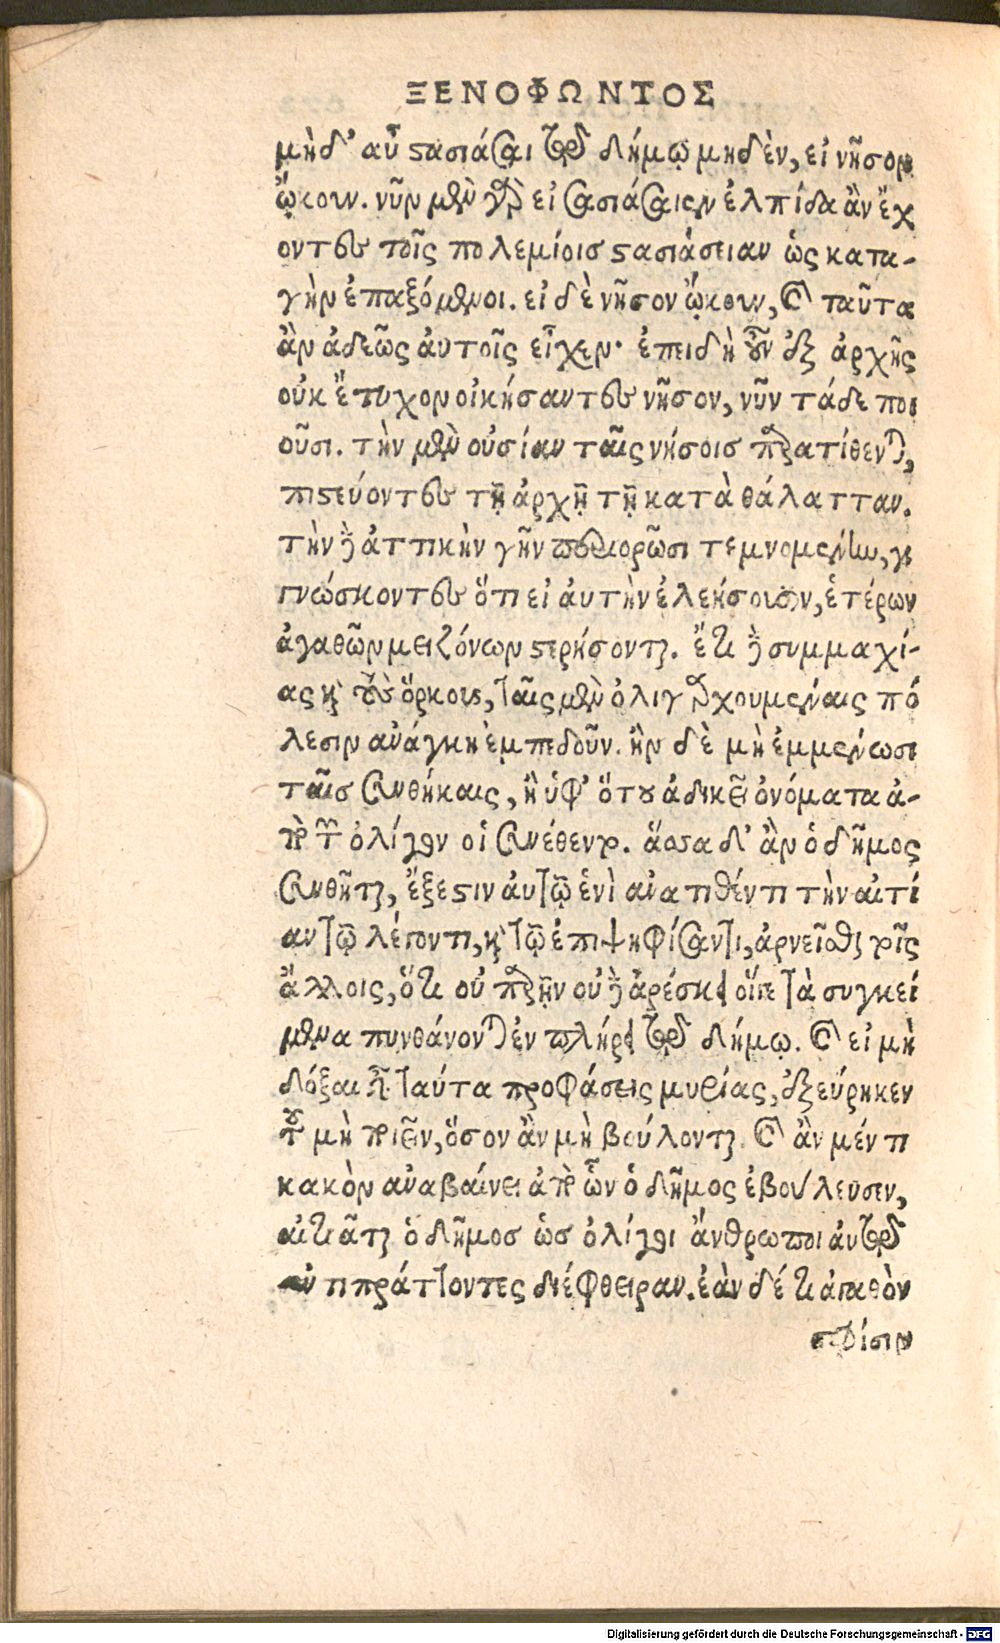 ΞΕΝΟΦΩΝΤΟΣ
μὴδ' αὖ στασιάσαι τῷ δήμῳ μηδὲν, εἰ νῆσον
ᾤκουν. νῦν μὲν γὰρ εἰ στασιάσαιεν ἐλπίδα ἂν ἔχ
οντες τοῖς πολεμίοις στασιάσειαν ὡς κατα-
γῆν ἐπαξόμενοι. εἰ δὲ νῆσον ᾤκουν, καὶ ταῦτα
ἂν ἀδεῶς ἀυτοῖς εἶχεν· ἐπειδὴ οὖν ἐξ ἀρχῆς
οὐκ ἔτυχον οἰκήσαντες νῆσον, νῦν τάδε ποι
οῦσι. τὴν μὲν οὐσίαν ταῖς νήσοις παρατίθενται,
πιστεύοντες τῇ ἀρχῇ τῇ κατὰ θάλατταν.
τὴν δὲ ἀττικὴν γῆν περιορῶσι τεμνομένην, γι
γνώσκοντες ὅτι εἰ ἀυτὴν ἐλεήσουσιν, ἑτέρων
ἀγαθῶν μειζόνων στερήσονται. ἔτι δὲ συμμαχί-
ας καὶ τοὺς ὅρκους, ταῖς μὲν ὀλιγαρχουμέναις πό
λεσιν ἀνάγκη ἐμπεδοῦν. ἢν δὲ μὴ ἐμμένωσι
ταῖς συνθήκαις, ἢ ὑφ' ὅτου ἀδικεῖ ὀνόματα ἀ-
πὸ τῶν ὀλίγων οἱ συνέθεντο. ἅσσα δ' ἂν ὁ δῆμος
συνθῆται, ἔξεστιν ἀυτῷ ἑνὶ ἀνατιθέντι τὴν αἰτί
αν τῷ λέγοντι, καὶ τῷ ἐπιψηφίσαντι, ἀρνεῖσθαι τοῖς
ἄλλοις, ὅτι οὐ παρῆν οὐδὲ ἀρέσκει οἵγε τὰ συγκεί
μενα πυνθάνονται ἐν πλήρει τῷ δήμῳ. καὶ εἰ μὴ
δόξαι εἶναι ταύτα προφάσεις μυρίας, ἐξεύρηκεν
τοῦ μὴ ποιεῖν, ὅσον ἂν μὴ βούλονται. καὶ ἂν μέν τι
κακὸν ἀναβαίνει ἀπὸ ὧν ὁ δῆμος ἐβούλευσεν,
αἰτιᾶται ὁ δῆμος ὡς ὀλίγοι ἄνθρωποι ἀυτῷ
ἀντιπράττοντες διέφθειραν. ἐὰν δέ τι ἀγαθὸν
σφίσιν
Digitalisierung gefördert durch die Deutsche Forschungsgemeinschaft - DFG